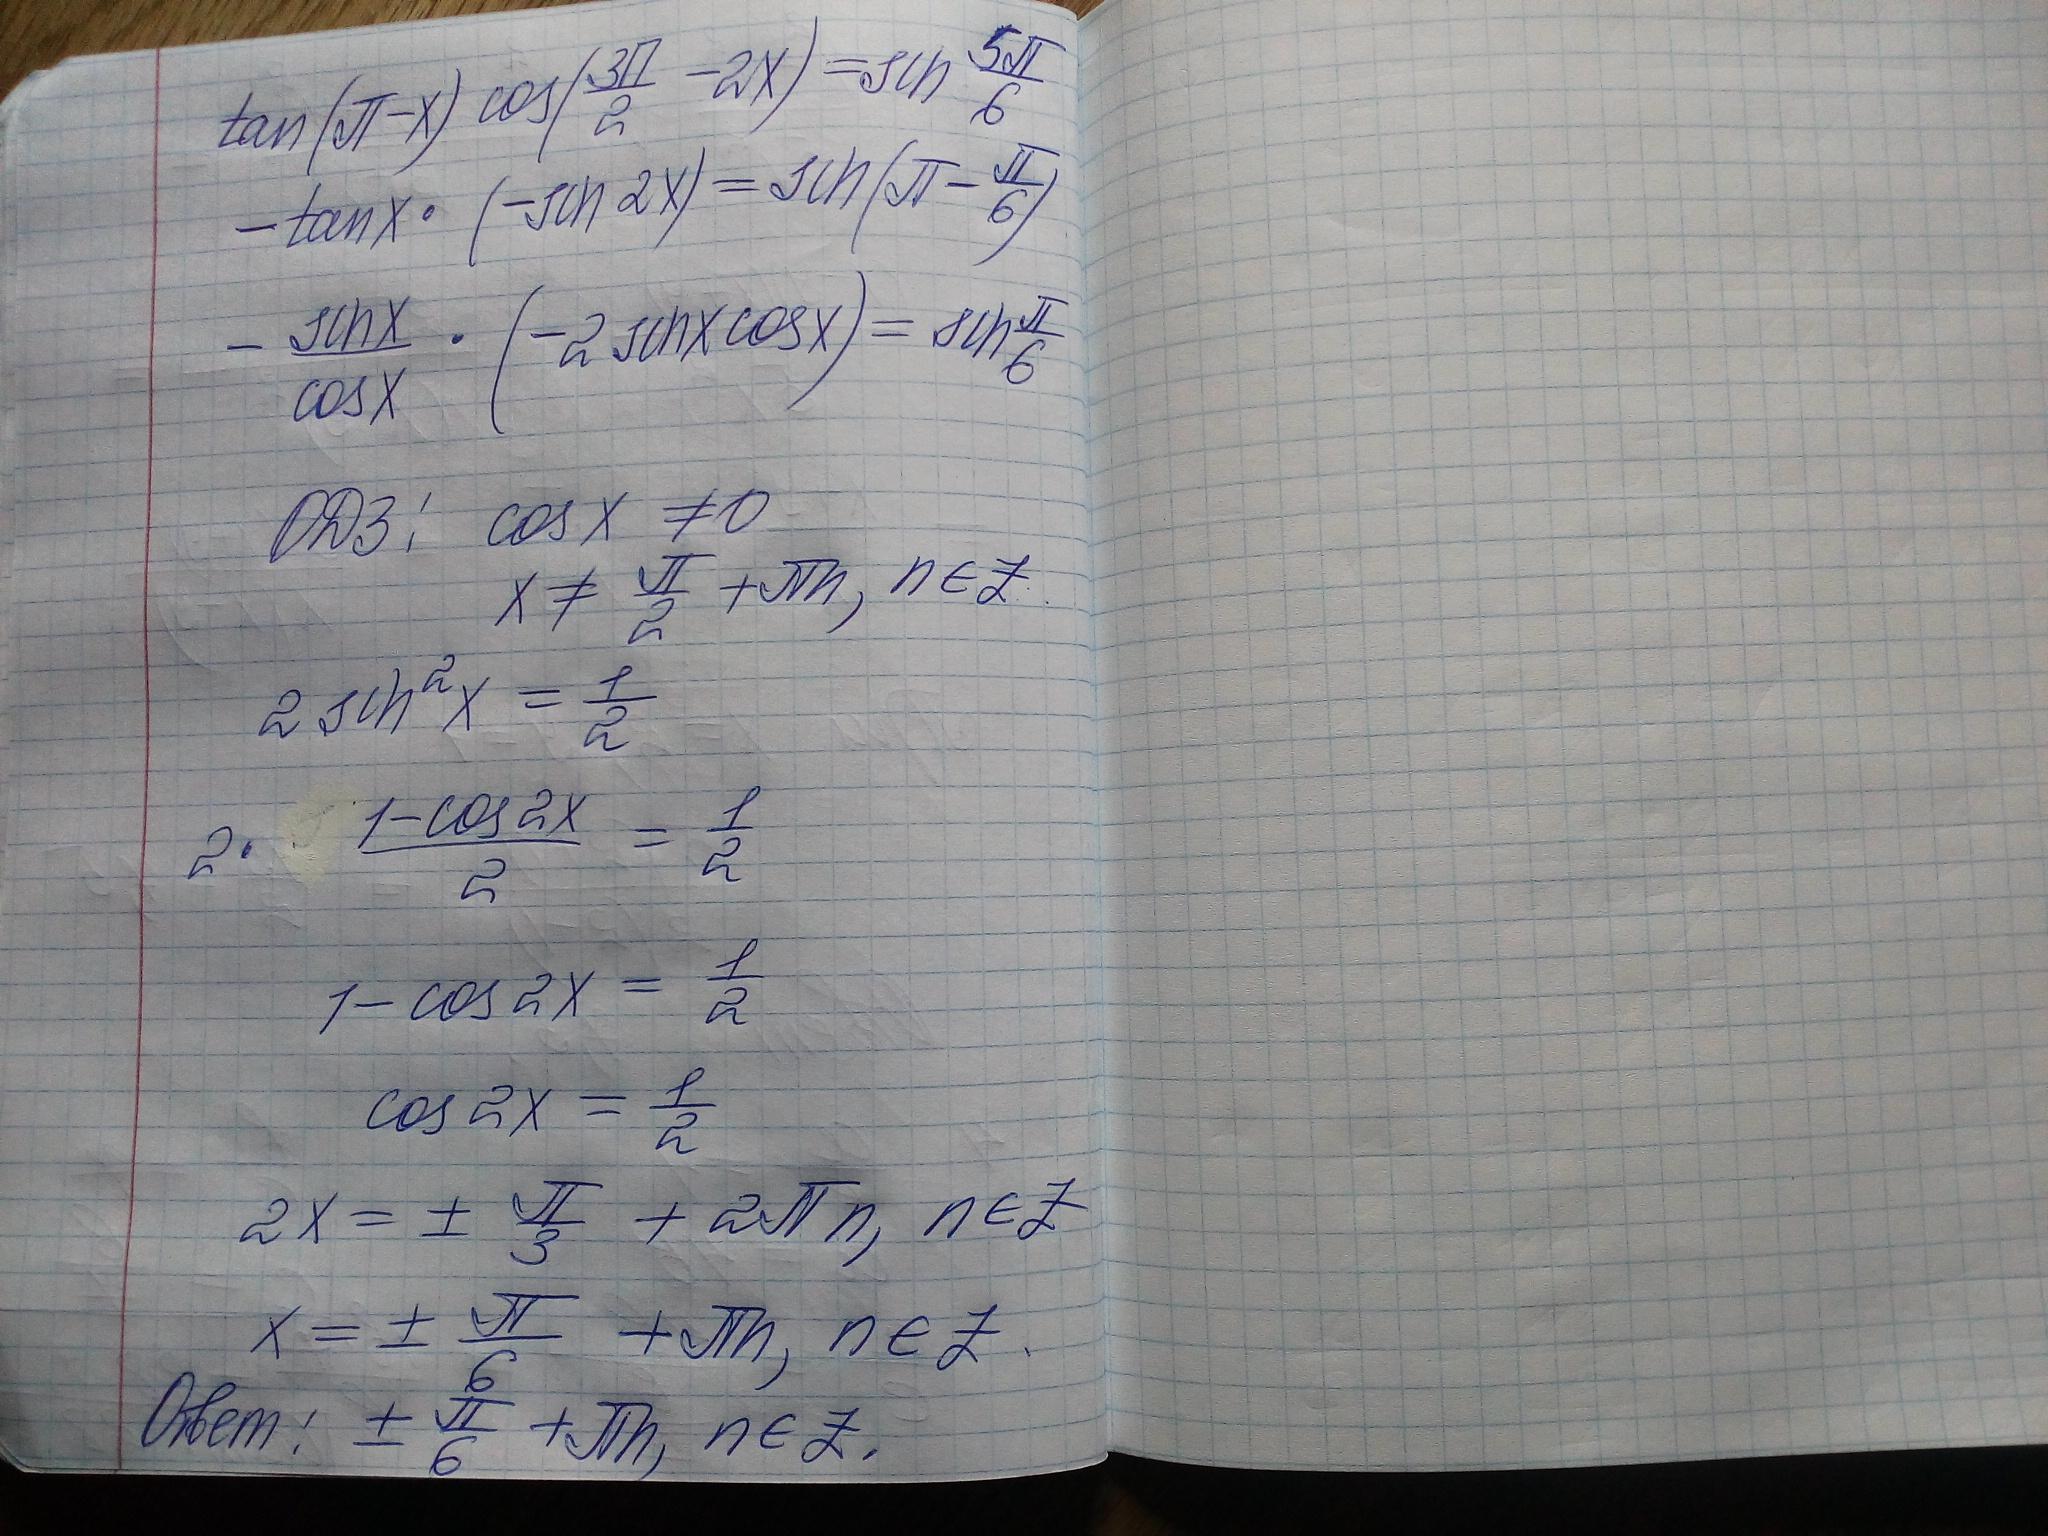 tan(π-x) cos(3π/2 -2x)=sin 5π/6
-tanx·(-sin 2x)=sin(π-π/6)
- sinx/cosx ·(-2sinxcosx)=sin π/6
ОДЗ: cosx ≠0
x≠ π/2 +πn, n∈Z.
2sin²x = 1/2
2· (1-cos2x)/2 = 1/2
1-cos2x= 1/2
cos2x= 1/2
2x=± π/3 +2πn, n∈Z
x=± π/6 +πn, n∈Z.
Ответ: ± π/6 +πn, n∈Z.